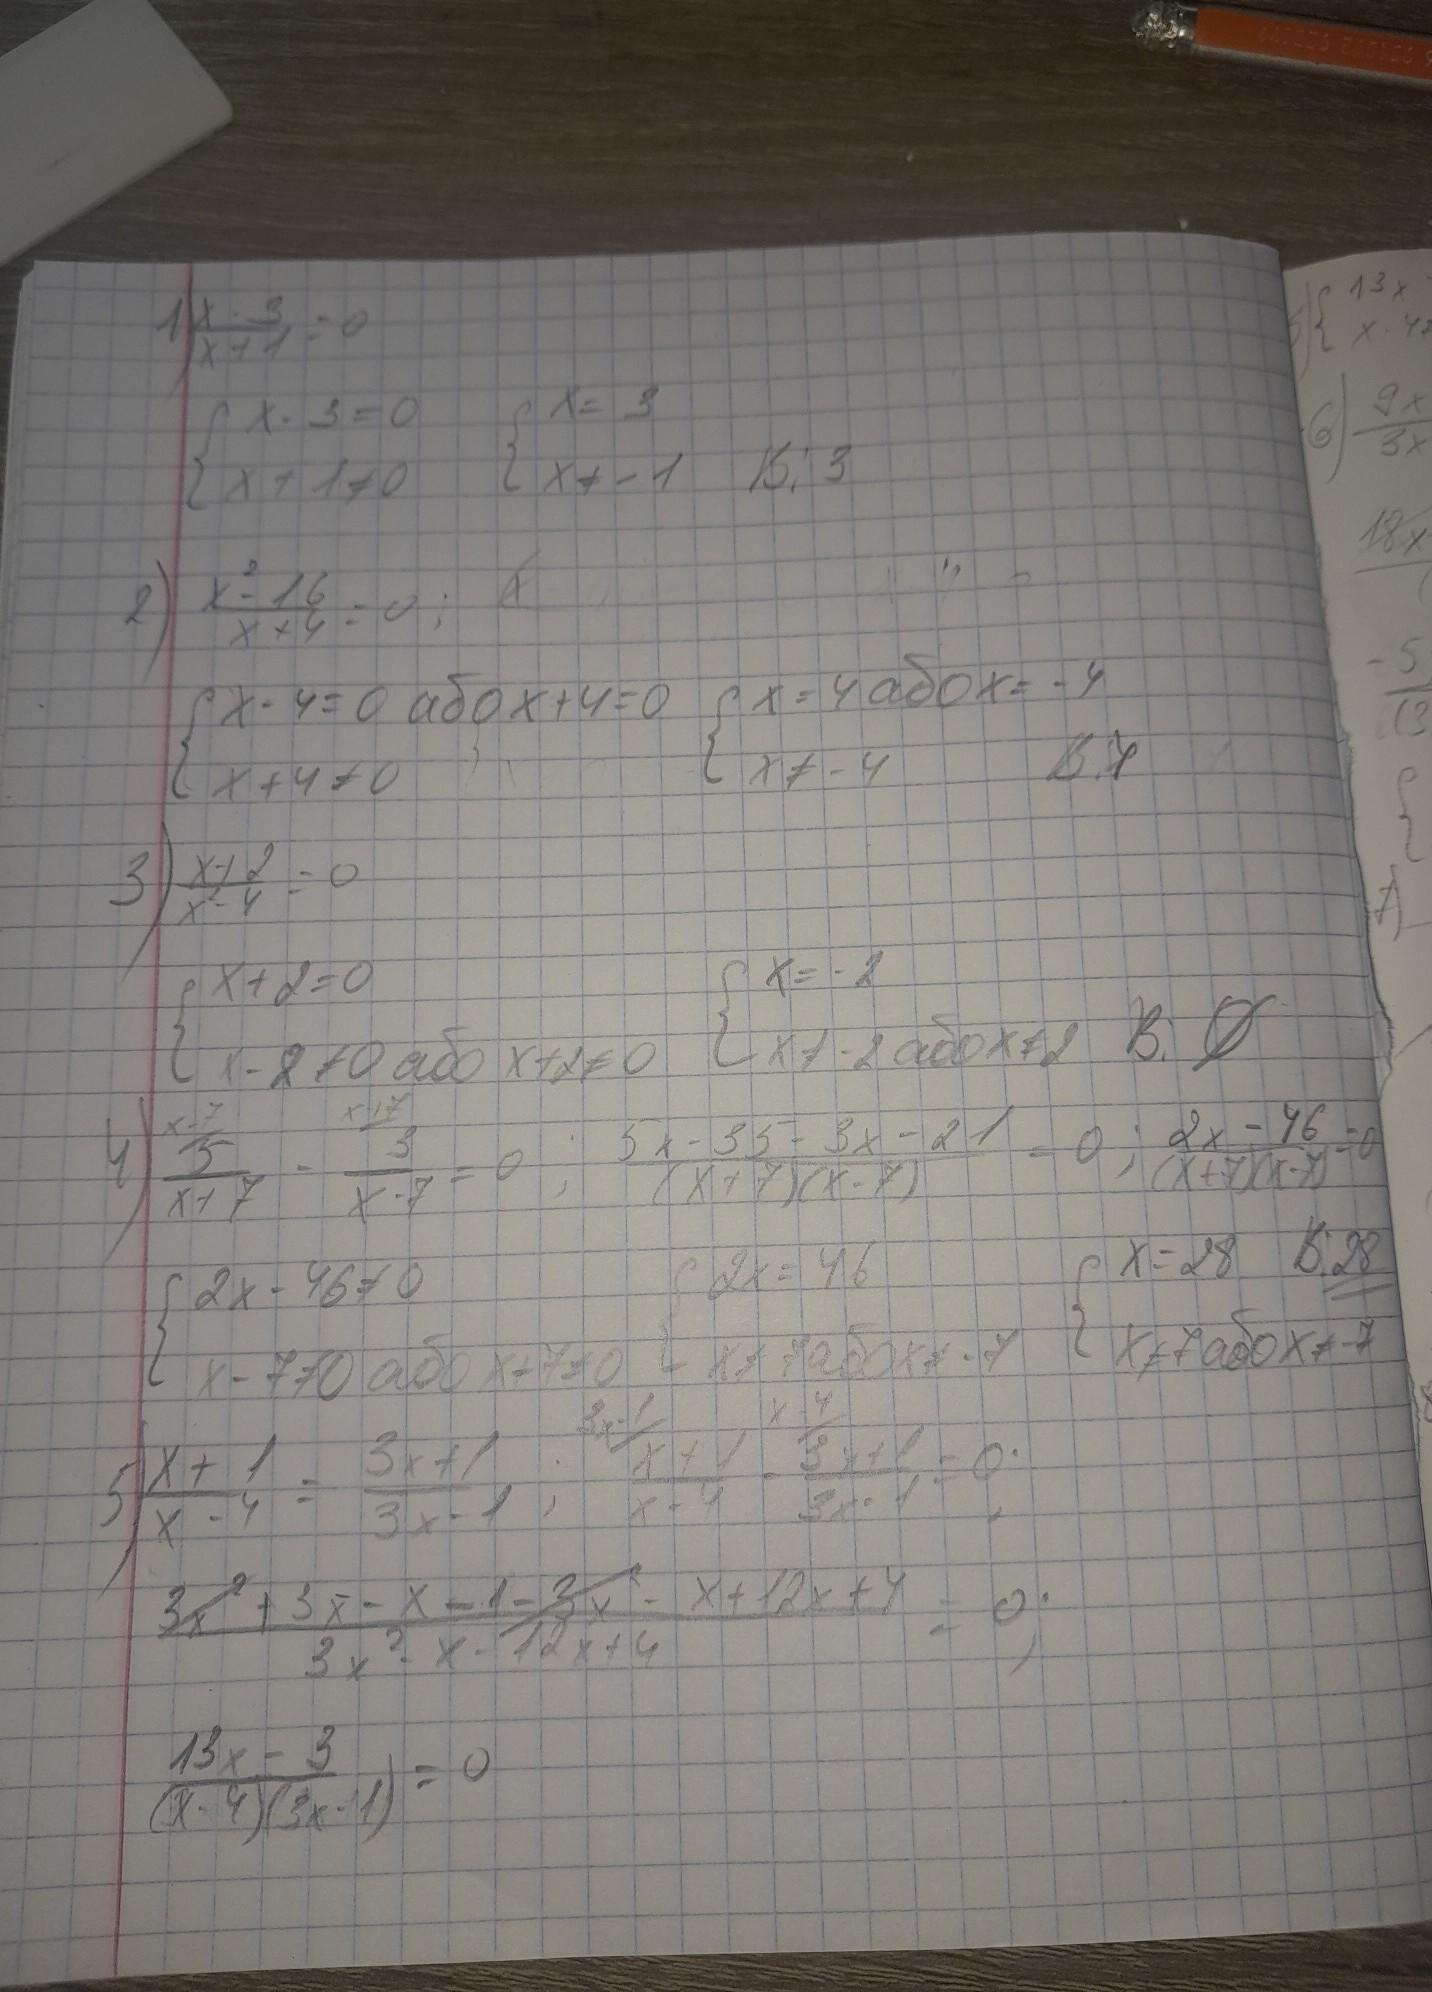 1) x-3/x+1 = 0
{ x-3=0 { x=3
{ x+1≠0 { x≠-1 В: 3
2) x²-16/x+4 = 0;
{ x-4=0 або x+4=0 { x=4 або x=-4
{ x+4≠0 { x≠-4 В: 4
3) x+2/x²-4 = 0
{ x+2=0 { x=-2
{ x-2≠0 або x+2≠0 { x≠-2 або x≠2 В: Ø
x-7 x+7
4) 5/x+7 - 3/x-7 = 0; 5x-35-3x-21/(x+7)(x-7) = 0; 2x-46/(x+7)(x-7) = 0
{ 2x-46≠0 { 2x=46 { x=28 В: 28
{ x-7≠0 або x+7≠0 { x≠7 або x≠-7 { x≠7 або x≠-7
3x-1 x-4
5) x+1/x-4 = 3x+1/3x-1; x+1/x-4 - 3x+1/3x-1 = 0;
3x²+3x-x-1-3x²-x+12x+4/3x²-x-12x+4 = 0;
13x-3/(x-4)(3x-1) = 0
13x
6) 9x/3x
18x
-5
(3
7)